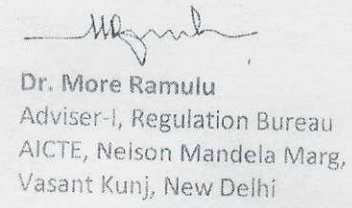 Dr. More Ramulu
Adviser-I, Regulation Bureau
AICTE, Nelson Mandela Marg,
Vasant Kunj, New Delhi